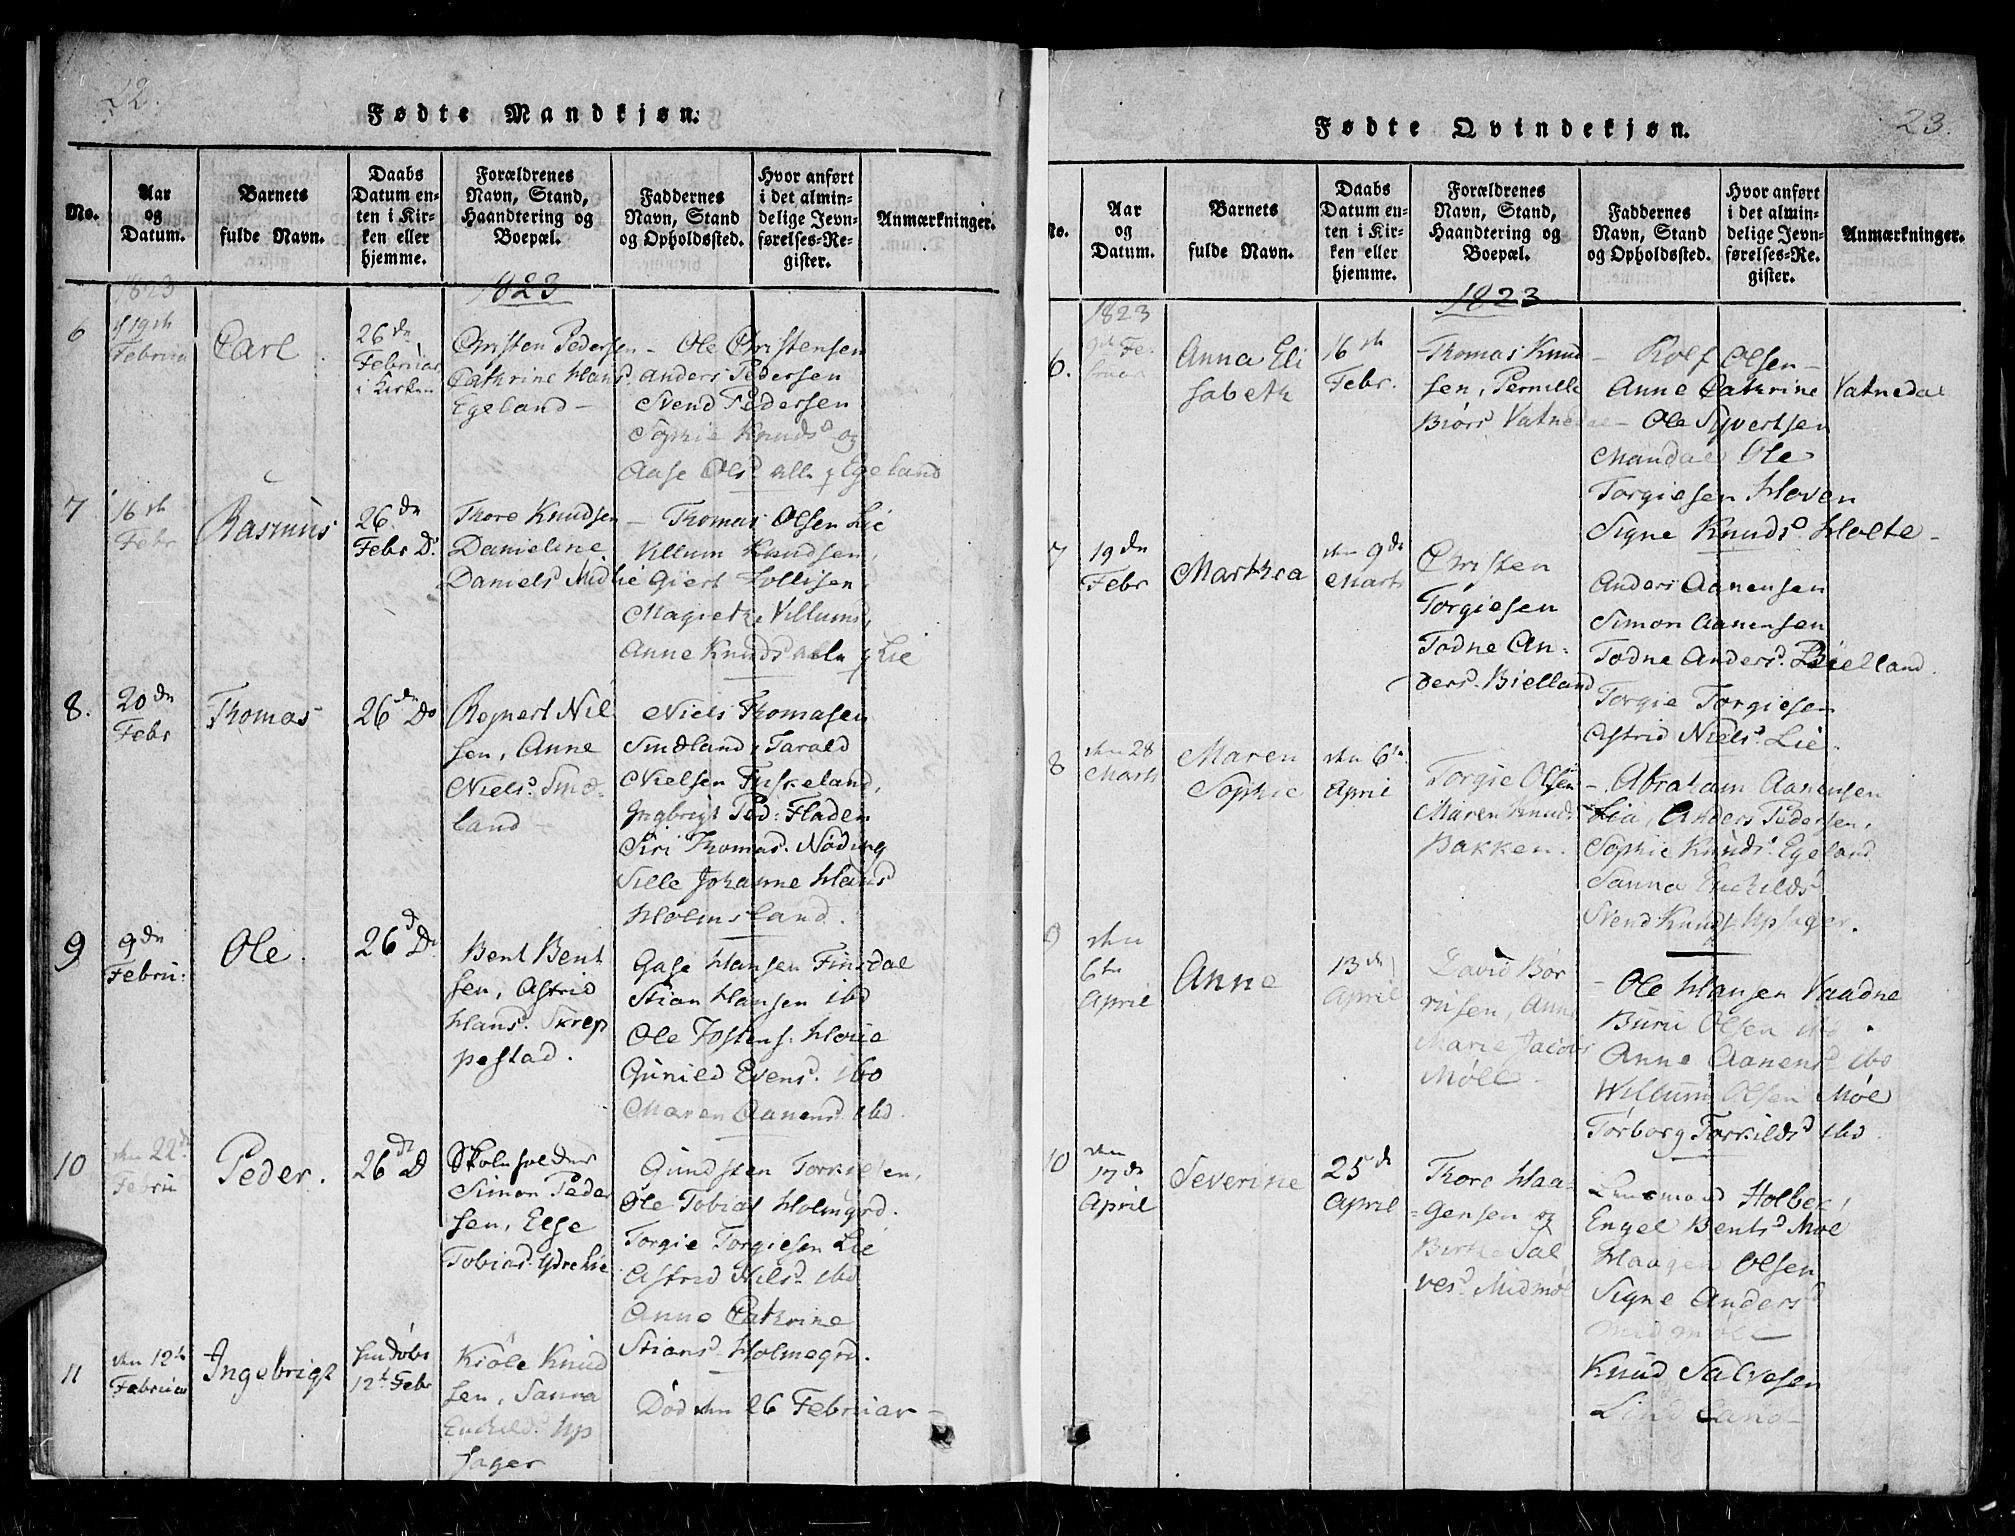 22.
Fødte Mandkjøn.
No.
Aar
og
Datum.
Barnets
fulde Navn.
Daabs
Datum en-
ten i Kir-
ken eller
hjemme.
Forældrenes
Navn, Stand,
Haandtering og
Boepæl.
Faddernes
Navn, Stand
og Opholdssted.
Hvor anført
i det almin-
delige Jevn-
førelses-Re-
gister.
Anmærkninger.
1823
1823
6
19th
Februa
Carl
26 dn
Februar
i Kirken
Christen Pedersen
Cathrine Hans
Egeland -
- Ole Christensen
Anders Pedersen
Svend Pedersen
Sophie Knudsd og
Aase Olsd alle f Egeland
7
16th
Febr
Rasmus
26. dn
Febr Do
Thore Knudsen
Danieline
Daniels Midlie
- Thomas Olsen Lie
Villum Knudsen,
Giert Tollisen,
Magrethe Villums,
Anne Knuds alle f Lie
8.
20 dn
Febr
Thomas
26 dn Do
Regnert Niel
sen, Anne
Nielsd. Smd-
land -
Niels Thomasen
Smdland, Tarald
Nielsen Fuskeland,
Ingbrigt Ped: Fladen
Siri Thomasd. Nöding
Sille Johanne Hansd
Holmsland.
9
9 dn
Febru:
Ole.
26 d Do
Bent Bent
sen, Astrid
Hansd. Skrep
pestad.
Gase Hansen Finsdal
Stian Hansen ibd
Ole Jostens: Hovie
Gunild Evensd. ibd
Maren Aanensd ibd.
10
den 22 dn
Febru
Peder.
26 dn D
Skoleholder
Simon Peder
sen, Else
Tobiasd. Ydre Lie
Gundsten Torkilsen,
Ole Tobias Holmgrd.
Torgie Torgiesen Lie
Astrid Nilsd ibd
Anne Catrine
Stiansd Holmegrd.
11
den 12te
Februar
Ingebrigt
hiemdöbt
12t Febr
Kiöle Knud
sen, Sanna
Enchild. Up
sager
Död den 26 Februar -
23.
Fødte Qvindekjøn.
No.
Aar
og
Datum.
Barnets
fulde Navn.
Daabs
Datum en-
ten i Kir-
ken eller
hjemme.
Forældrenes
Navn, Stand,
Haandtering og
Boepæl.
Faddernes
Navn, Stand
og Opholdssted.
Hvor anført
i det almin-
delige Jevn-
førelses-Re-
gister.
Anmærkninger.
1823
1823
6.
Fe-
bruar
Anna Eli
sabeth
16th
Febr.
Thomas Knud
sen, Pernille
Biörs Vatnedal
- Rolf Olsen -
Anne Cathrine Vatnedal
- Ole Syvertsen
Mandal Ole
Torgiesen Hoven
Signe Knudsd Holte -
7
19 dn
Febr
Marthea
den 9 de
Marts
Christen
Torgiesen
Todne An-
dersd. Bielland
Anders Aanensen
Simon Aanensen
Todne Andersd. Bielland
Torgie Torgiesen
Astrid Nielsd. Lie.
8
den 28
Marts
Maren
Sophie
den 6te
April
Torgie Olsen
Maren Knuds
Bakken.
- Abraham Aanensen
Lia, Anders Pedersen,
Sophie Knudsd. Egeland
Sanna Enchilds
Svend Knuds Upsager.
9
den
6te
April
Anne
13 de
April
David Bör
risen, Anne
Marie Jacobs
Möll -
- Ole Hansen Vaadne
Buru Olsen ibd.
Anne Aanensd ibd
Willum Olsen Möl
Torborg Torkildsd ibd.
10
den
17 de
April
Severine
25 d
April
Thore Haa-
gensen og
Birthe Sal
vesd. Midmöl
Lensmand Holbek,
Engel Bentsd Möl
Haagen Olsen
Signe Andersd
Midmöll
Knud Salvesen
Lindland